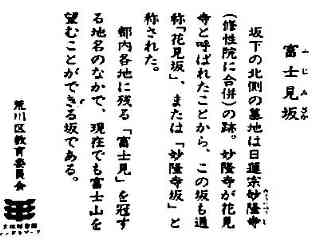 富士見坂
ふじみざか
坂下の北側の墓地は日蓮宗妙隆寺
(修性院に合併)の跡。妙隆寺が花見
寺と呼ばれたことから、この坂も通
称「花見坂」、または「妙隆寺坂」と
称された。
都内各地に残る「富士見」を冠す
る地名のなかで、現在でも富士山を
望むことができる坂である。
荒川区教育委員会